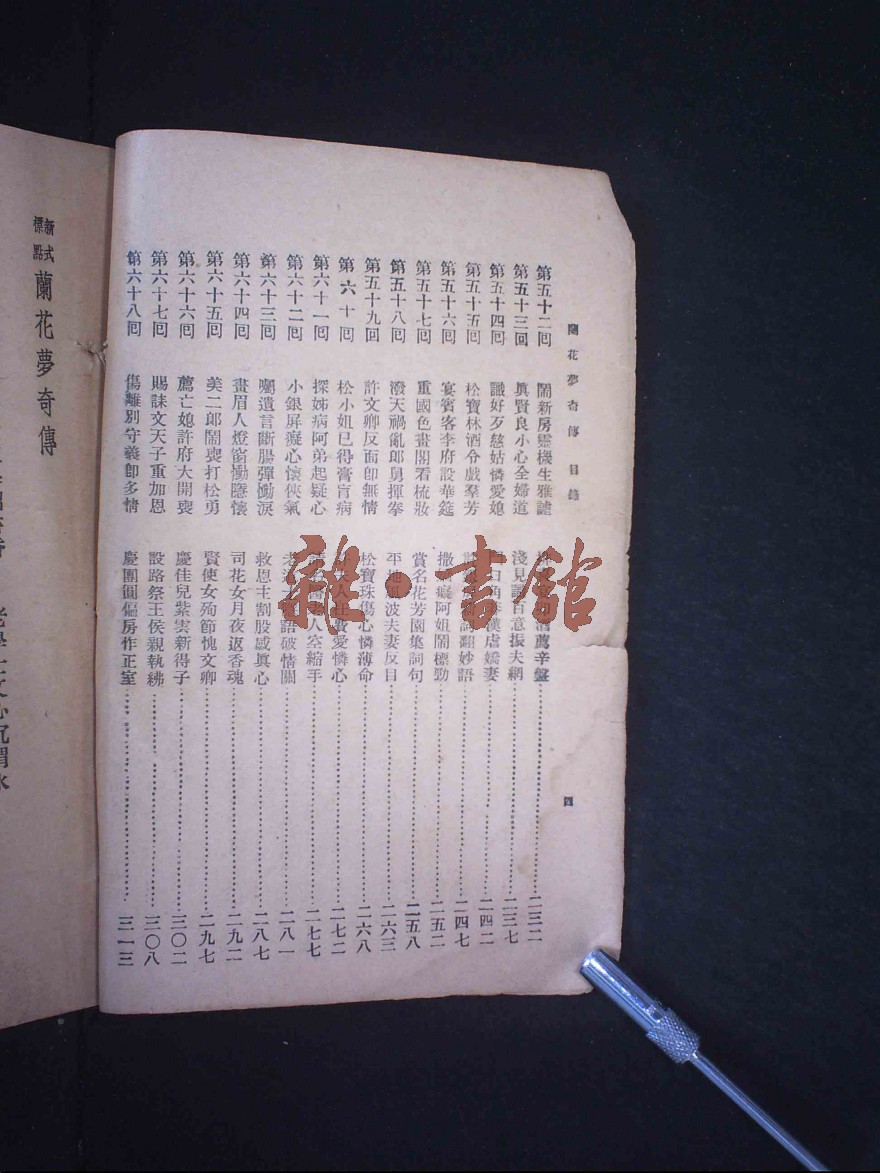 蘭花夢奇傳 目錄
四
第五十二囘 鬧新房靈機生雅謔 薦辛盤 二三二
第五十三回 眞賢良小心全婦道 淺見 百意振夫綱 二三七
第五十四囘 譏好歹慈姑憐愛媳 口角 虐嬌妻 二四二
第五十五囘 松寶林酒令戲羣芳 翻妙語 二四七
第五十六囘 宴賓客李府設華筵 撒癡癡阿姐鬧標勁 二五二
第五十七囘 重國色畫閣看梳妝 賞名花芳園集詞句 二五八
第五十八囘 潑天禍亂郎舅揮拳 平地風波夫妻反目 二六三
第五十九回 許文卿反面卽無情 松寶珠傷心憐薄命 二六八
第六十囘 松小姐已得膏肓病 夫人 費愛憐心 二七二
第六十一囘 探姊病阿弟起疑心 人空縮手 二七七
第六十二囘 小銀屛癡心懷俠氣 老 語破情關 二八一
第六十三囘 囑遺言斷腸彈慟淚 救恩主割股感眞心 二八七
第六十四囘 畫眉人燈窗慟隱懷 司花女月夜返香魂 二九二
第六十五囘 美二郎鬧喪打松勇 賢使女殉節愧文卿 二九七
第六十六囘 薦亡媳許府大開喪 慶佳兒紫雲新得子 三〇二
第六十七囘 賜誄文天子重加恩 設路祭王侯親執紼 三〇八
第六十八囘 傷離別守義卽多情 慶團圓偏房作正室 三一三
新式標點 蘭花夢奇傳
雜·書館